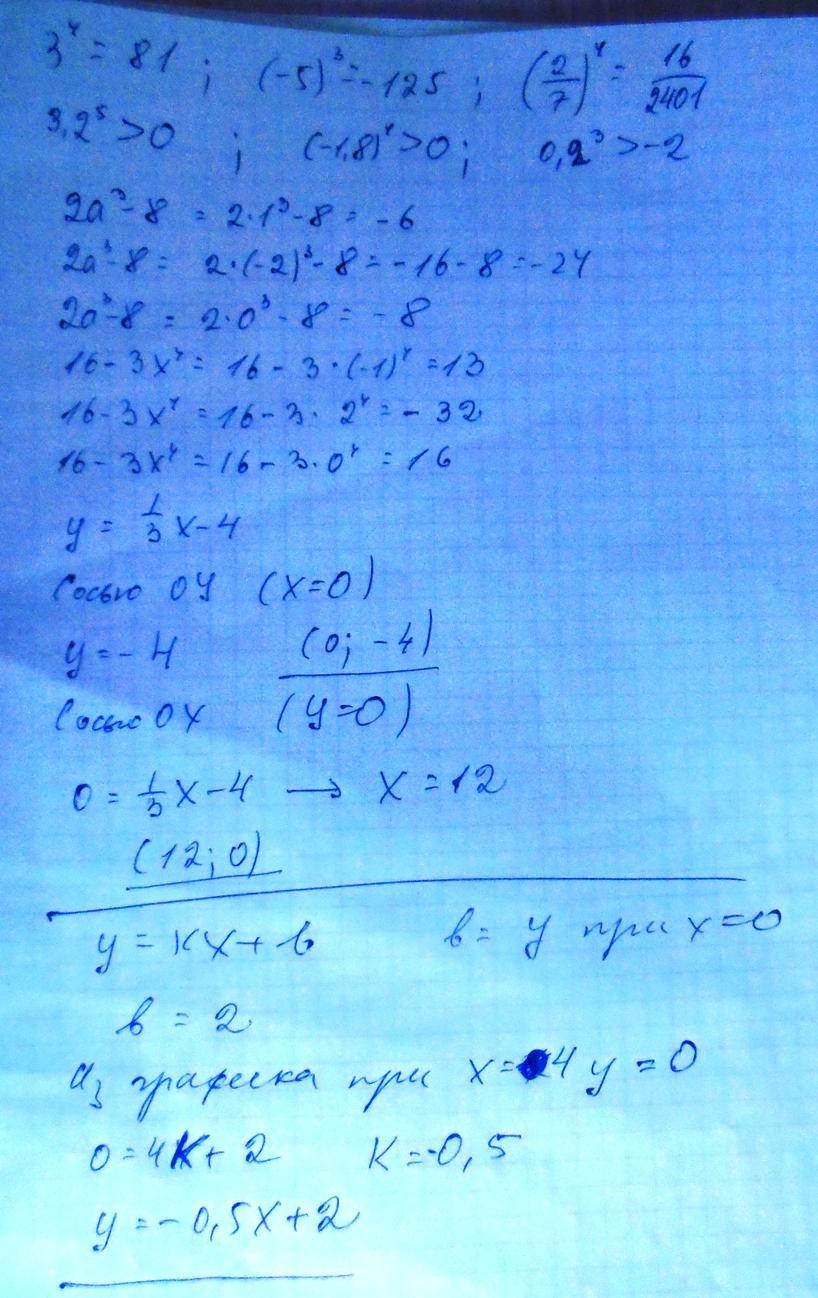 3⁴ = 81 ; (-5)³ = -125 ; (2/7)⁴ = 16/2401
3,2⁵ > 0 ; (-1,8)⁴ > 0 ; 0,2³ > -2
2a³ - 8 = 2·1³ - 8 = -6
2a³ - 8 = 2·(-2)³ - 8 = -16 - 8 = -24
2a³ - 8 = 2·0³ - 8 = -8
16 - 3x⁴ = 16 - 3·(-1)⁴ = 13
16 - 3x⁴ = 16 - 3· 2⁴ = - 32
16 - 3x⁴ = 16 - 3·0⁴ = 16
y = 1/3 x - 4
С осью ОУ (x=0)
y = - 4 (0; -4)
С осью ОХ (y=0)
0 = 1/3 x - 4 → x = 12
(12; 0)
y = kx + b b = y при x = 0
b = 2
Из графика при x = 4 y = 0
0 = 4k + 2 k = -0,5
y = -0,5x + 2